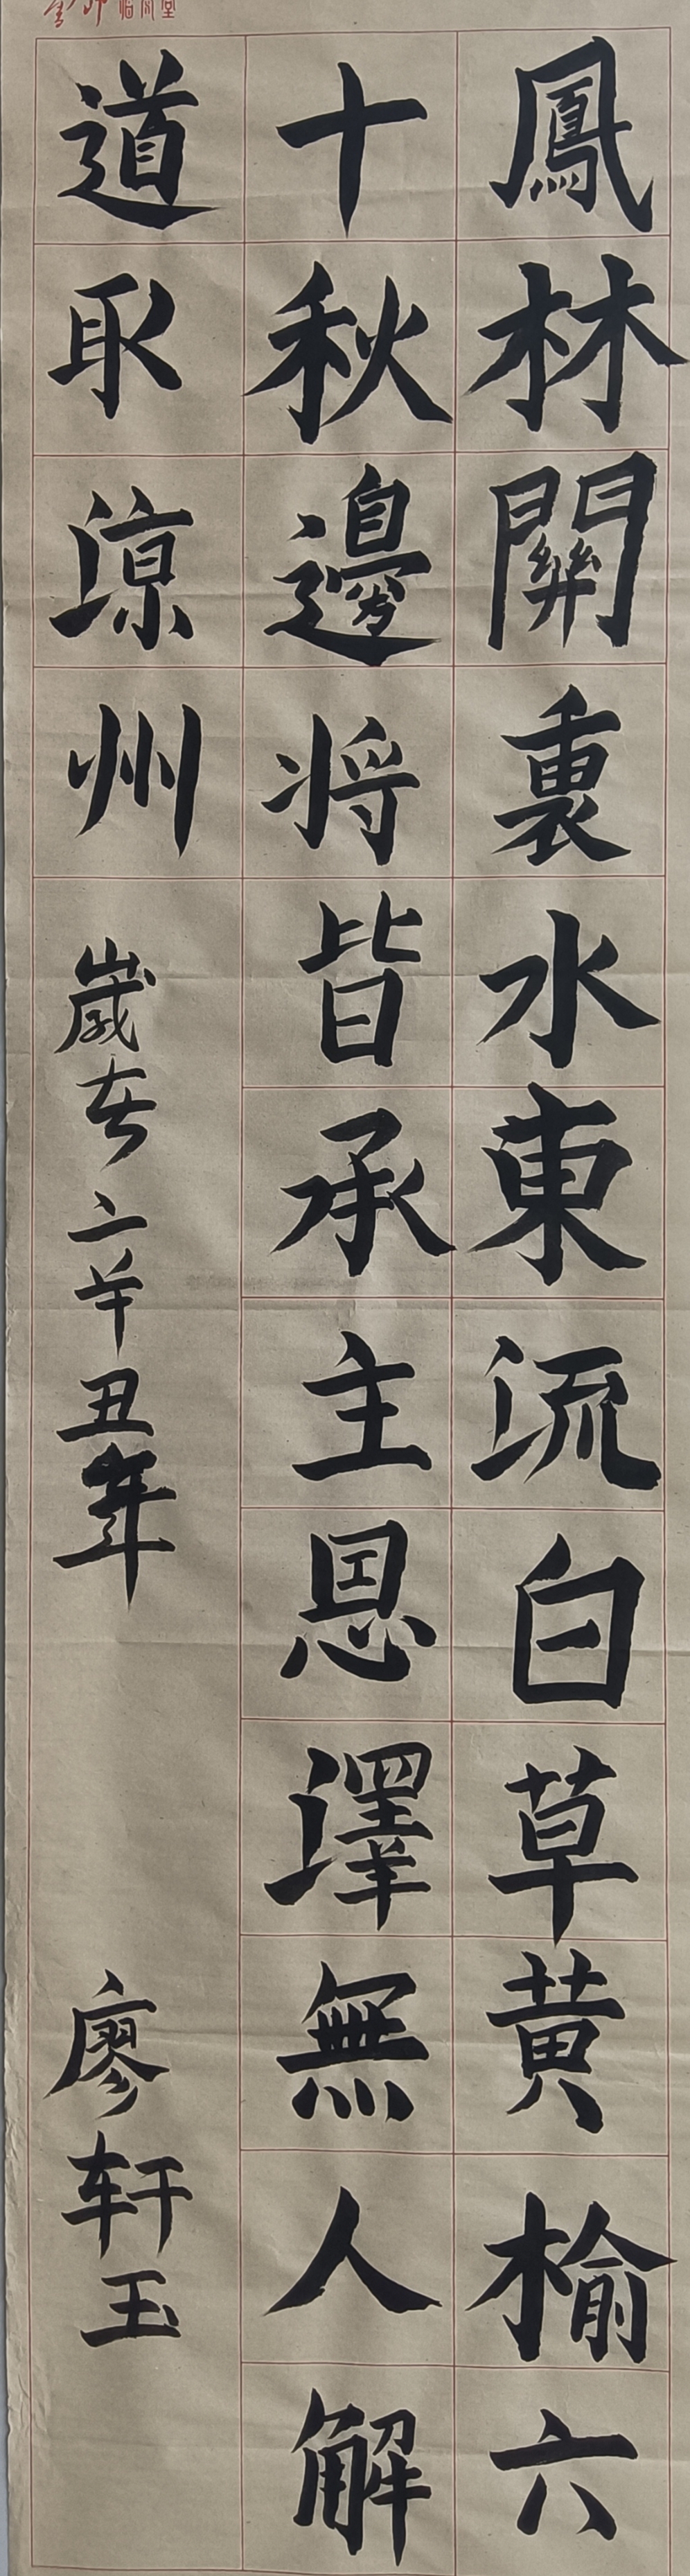 鳳林關裏水東流白草黄榆六
十秋邊将皆承主恩澤無人解
道取涼州
歲在辛丑年
廖轩玉